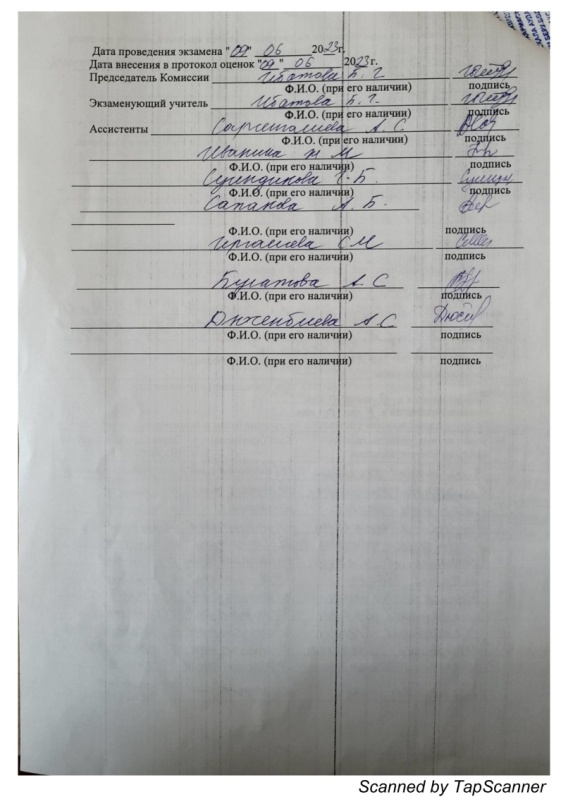 Дата проведения экзамена "09" 06 2023г.
Дата внесения в протокол оценок "09" 06 2023г.
Председатель Комиссии Ибатова Б. Г.
Ф.И.О. (при его наличии) подпись
Экзаменующий учитель Ибатова Б. Г.
Ф.И.О. (при его наличии) подпись
Ассистенты А. С.
Ф.И.О. (при его наличии) подпись
Иванина М
Ф.И.О. (при его наличии) подпись
Сундикова Г. Б
Ф.И.О. (при его наличии) подпись
Сапанова А. Б.
Ф.И.О. (при его наличии) подпись
Иргалиева С М
Ф.И.О. (при его наличии) подпись
Булатова А. С
Ф.И.О. (при его наличии) подпись
Дюсенбиева А С
Ф.И.О. (при его наличии) подпись
Ф.И.О. (при его наличии) подпись
Scanned by TapScanner